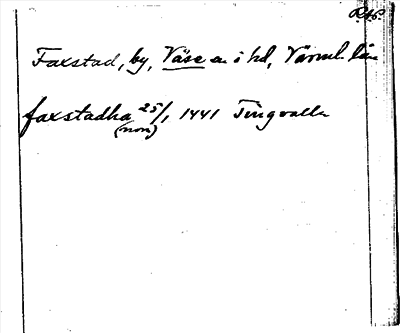 RAP.
Faxstad, by, Väse sn i hd, Värml. län
faxstadha 25/1 1441 Tingvalla
(non)